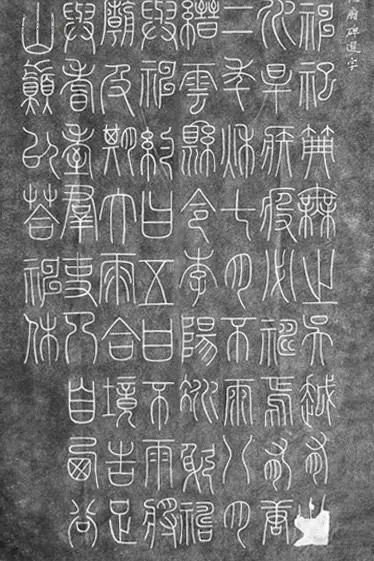 廟碑選字
神祀典無之吳越有之
水旱疾疫必禱焉有唐
二年秋七月不雨八月
縉雲縣令李陽冰躬禱
與神約曰五日不雨將
廟及期大雨合境告足
與耆耋羣吏乃自西谷
山巔以答神休